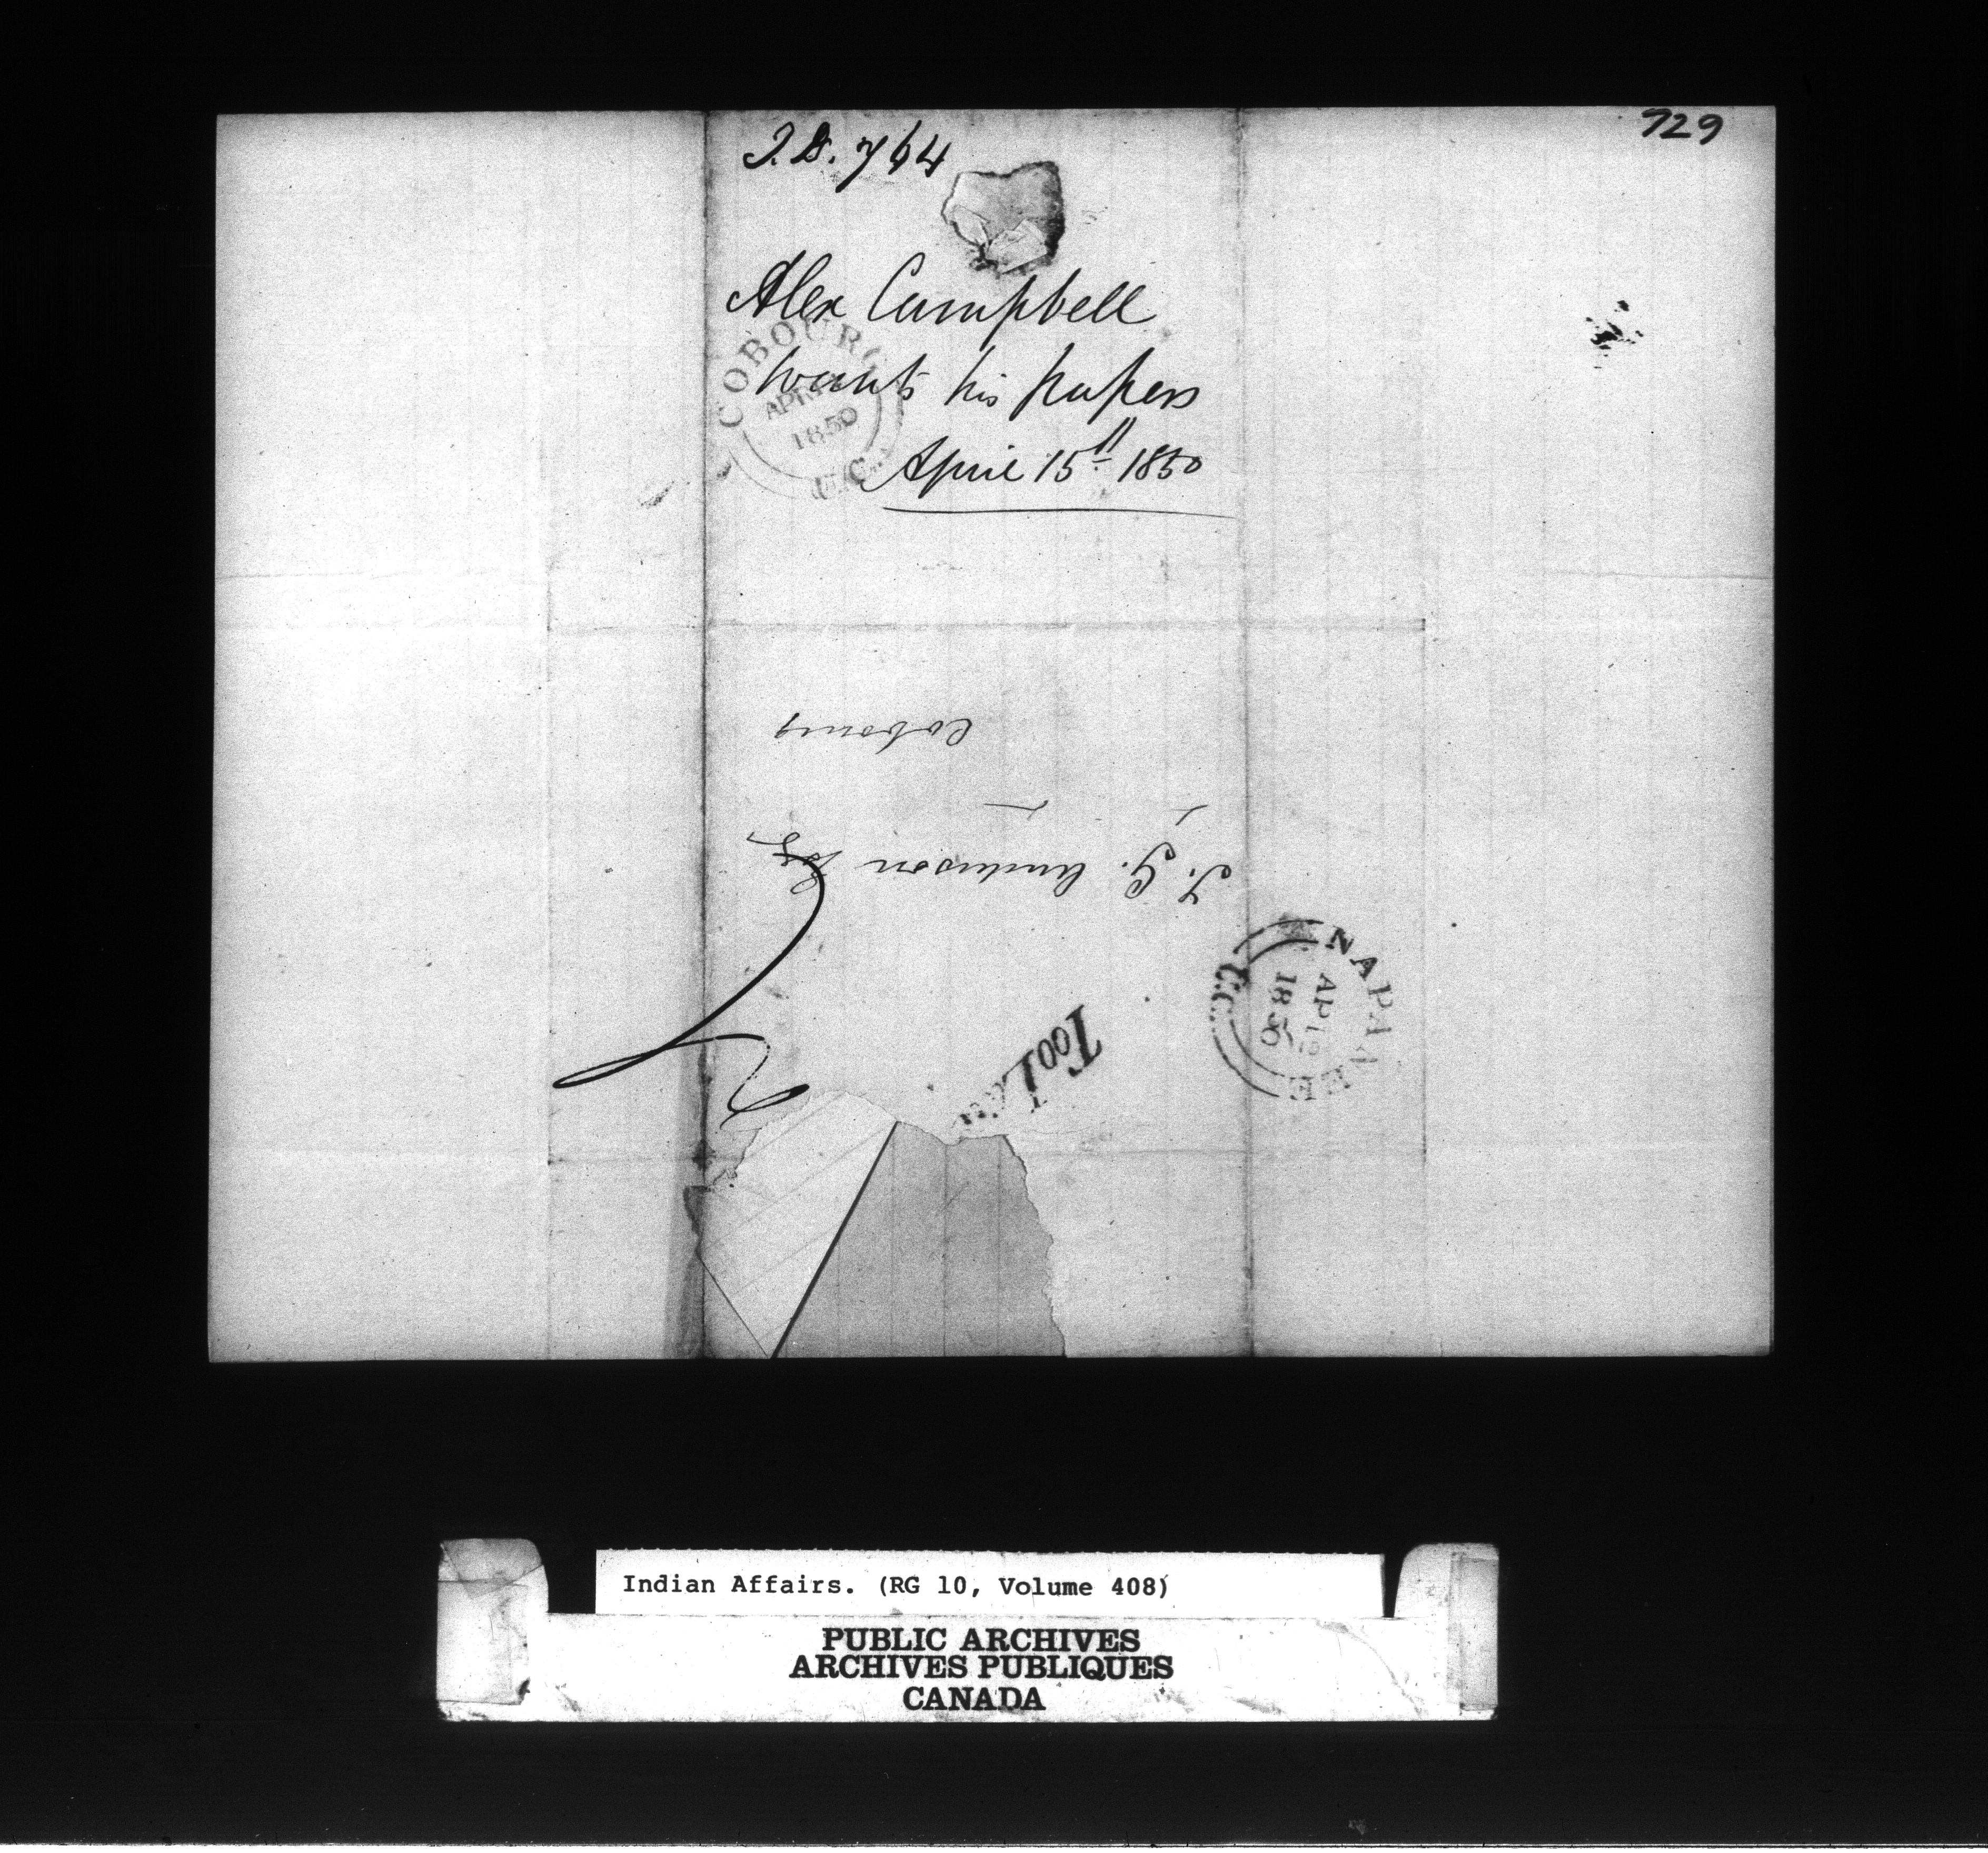 729
J. B. 764
Alex Campbell
wants his papers
April 15th 1850
COBOURG
APR
1850
U.C.
Cobourg
T. G. Anderson Esq
NAPANEE
AP 15
1850
U.C.
Too La
Indian Affairs. (RG 10, Volume 408)
PUBLIC ARCHIVES
ARCHIVES PUBLIQUES
CANADA